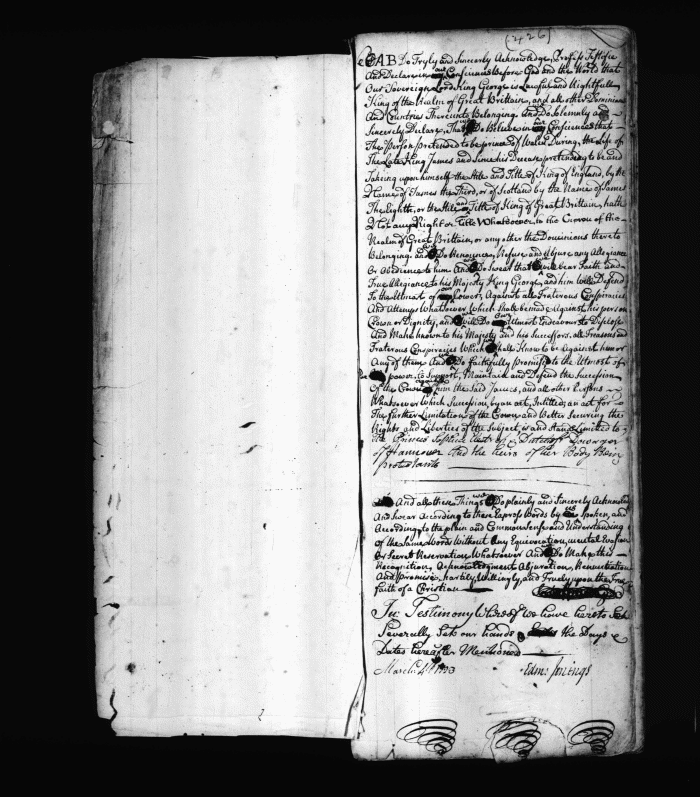 (426)
I A B Do Truly and Sincerly Acknowledge, Profess Testifie
And Declare in our Consciences Before God and the World that
Our Sovereign Lord King George is Lawfull and Rightfull
King of the Realm of Great Brittain, and all other Dominions
And Countries Thereunto Belonging And Do Solemnly and
Sincerely Declare, That we Do Believe in our Consciences that
The Person pretended to be prince of Wales During the Life of
The Late King James and Since his Decease pretending to be and
Takeing upon himself the Stile and Title of King of England, by the
Name of James the Third, or of Scotland by the Name of James
The Eighth, or the Stile and Title of King of Great Brittain, hath
Not any Right or Title Whatsoever, to the Crown of the
Realm of Great Brittain, or any other the Dominions thereto
Belonging and we Do Renounce, Refuse and Abjure any Allegiance
Or Obedience to him And we Do Swear that we will bear Faith and
True Allegiance to his Majesty King George, and him will Defend
To the Utmost of our Power, Against all Traterous Conspiracies
And Attempts Whatsoever Which Shall be made Against his person
Crown or Dignity, and we will Do our Utmost Endeavour to Disclose
And Make known to his Majesty and his Successors, all Treasons and
Traterous Conspiracies Which we Shall Know to be Against him or
Any of them And we Do faithfully promise to the Utmost of
our power, to Support, Maintain and Defend the Succession
Of the Crown against him the Said James, and all other Persons
Whatsoever Which Succession, by an act, Intitled, an act for
The further Limitation of the Crown and Better Securing the
Rights and Liberties of the Subject, is and Stands Limited to
the Princess Sophia Dowager
of Hannover And the heirs of her Body Being
protestants
And all these Things we Do plainly and Sincerely Acknowledge
And Swear According to these Express Words by us Spoken, and
According to the plain and Common Sense and Understanding
of the Same Words Without Any Equivocation, mental Evasion
Or Secret Reservation Whatsoever And we Do Make this
Recognition, Acknowledgment Abjuration, Renunciation
And promise, hartily, Willingly, and Truely upon the True
faith of a Christian
In Testimony Whereof we have hereto Set
Severally Set our hands the Days &
Dates hereafter Mentioned
March 4th 1733 Edmd Jnings